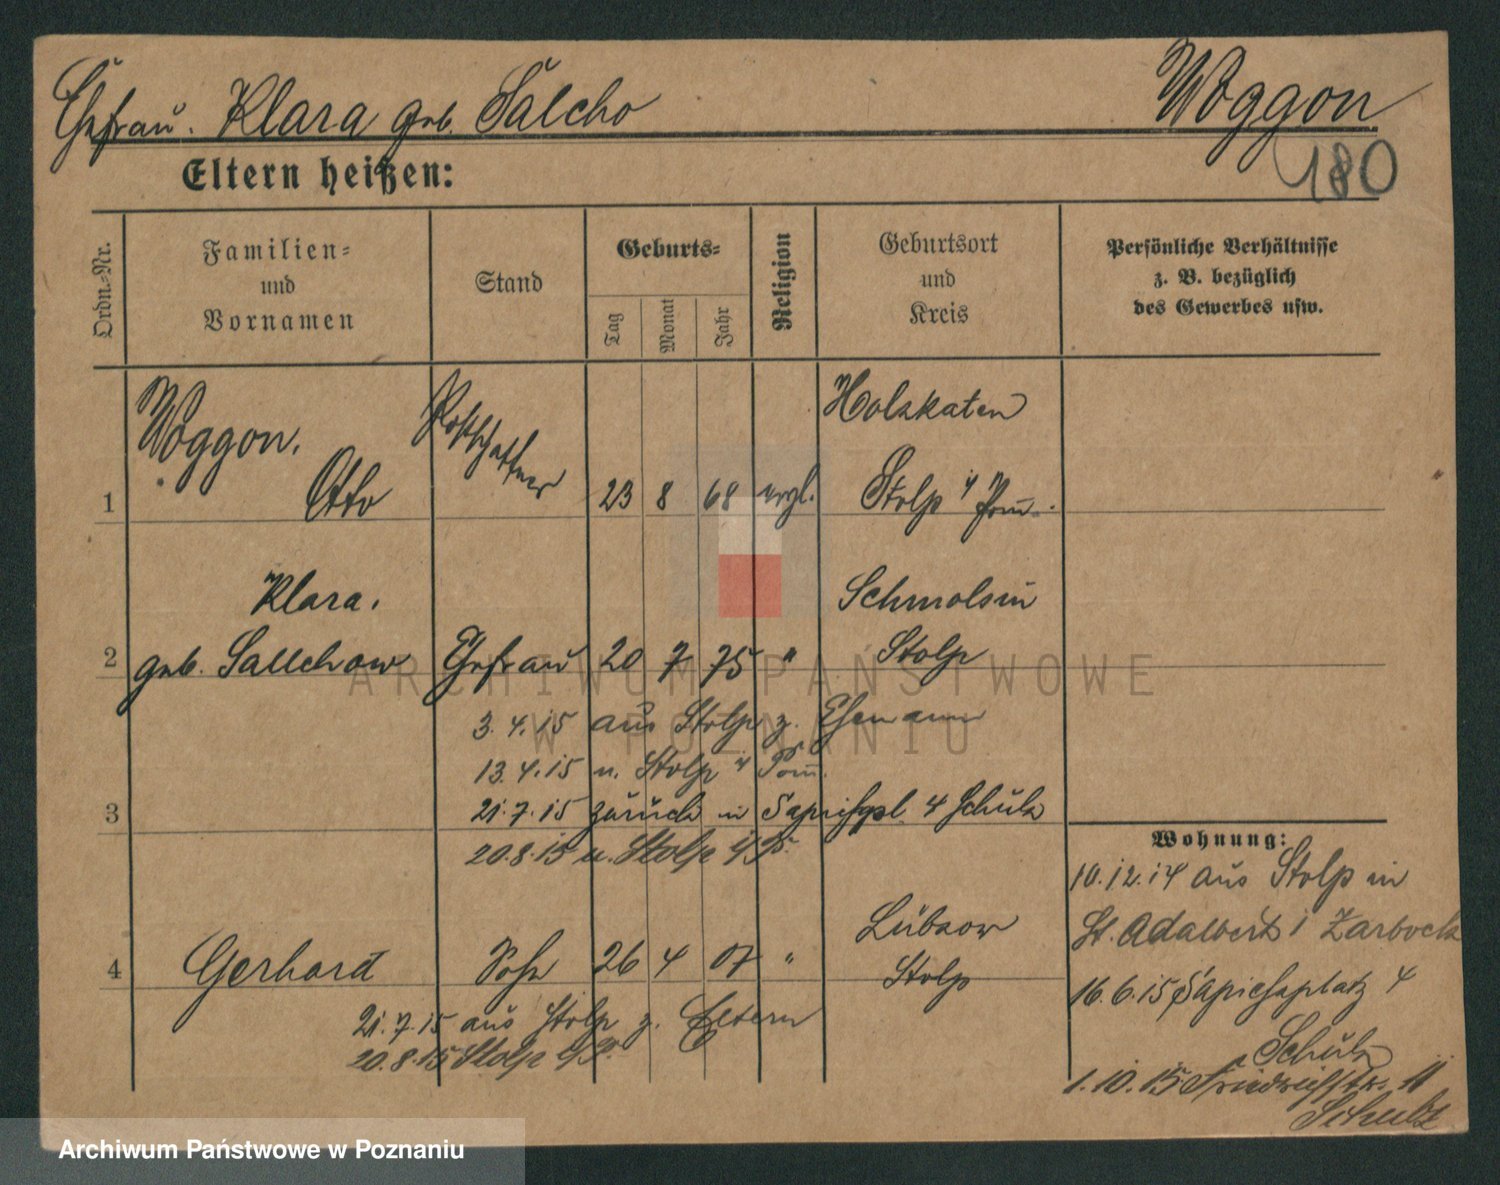 Ehefrau. Klara geb. Salcho
Woggon
180
Eltern heißen:
Ordn.-Nr.
Familien-
und
Vornamen
Stand
Geburts-
Tag
Monat
Jahr
Religion
Geburtsort
und
Kreis
Persönliche Verhältnisse
z. B. bezüglich
des Gewerbes usw.
1
Woggon.
Otto
Postschaffner
23 8 68 evgl.
Holzkaten
Stolp i/ Pom.
2
Klara.
geb. Sallchow
Ehefrau
20 7 75 "
Schmolsin
Stolp
3.4.15 aus Stolp z. Ehemann
13.4.15 n. Stolp i/ Pom.
3
21.7.15 zurück in Sapiehapl. 4 Schulz
20.8.15 n. Stolp i/P.
4
Gerhard
Sohn
26 4 07 "
Lübzow
Stolp
21.7.15 aus Stolp z. Eltern
20.8.15 Stolp i/P.
Wohnung:
10.12.14 aus Stolp in
St. Adalbert 1 Zarbock
16.6.15 Sapiehaplatz 4
Schulz
1.10.15 Friedrichstr. 11
Schulz
ARCHIWUM PAŃSTWOWE
W POZNANIU
Archiwum Państwowe w Poznaniu